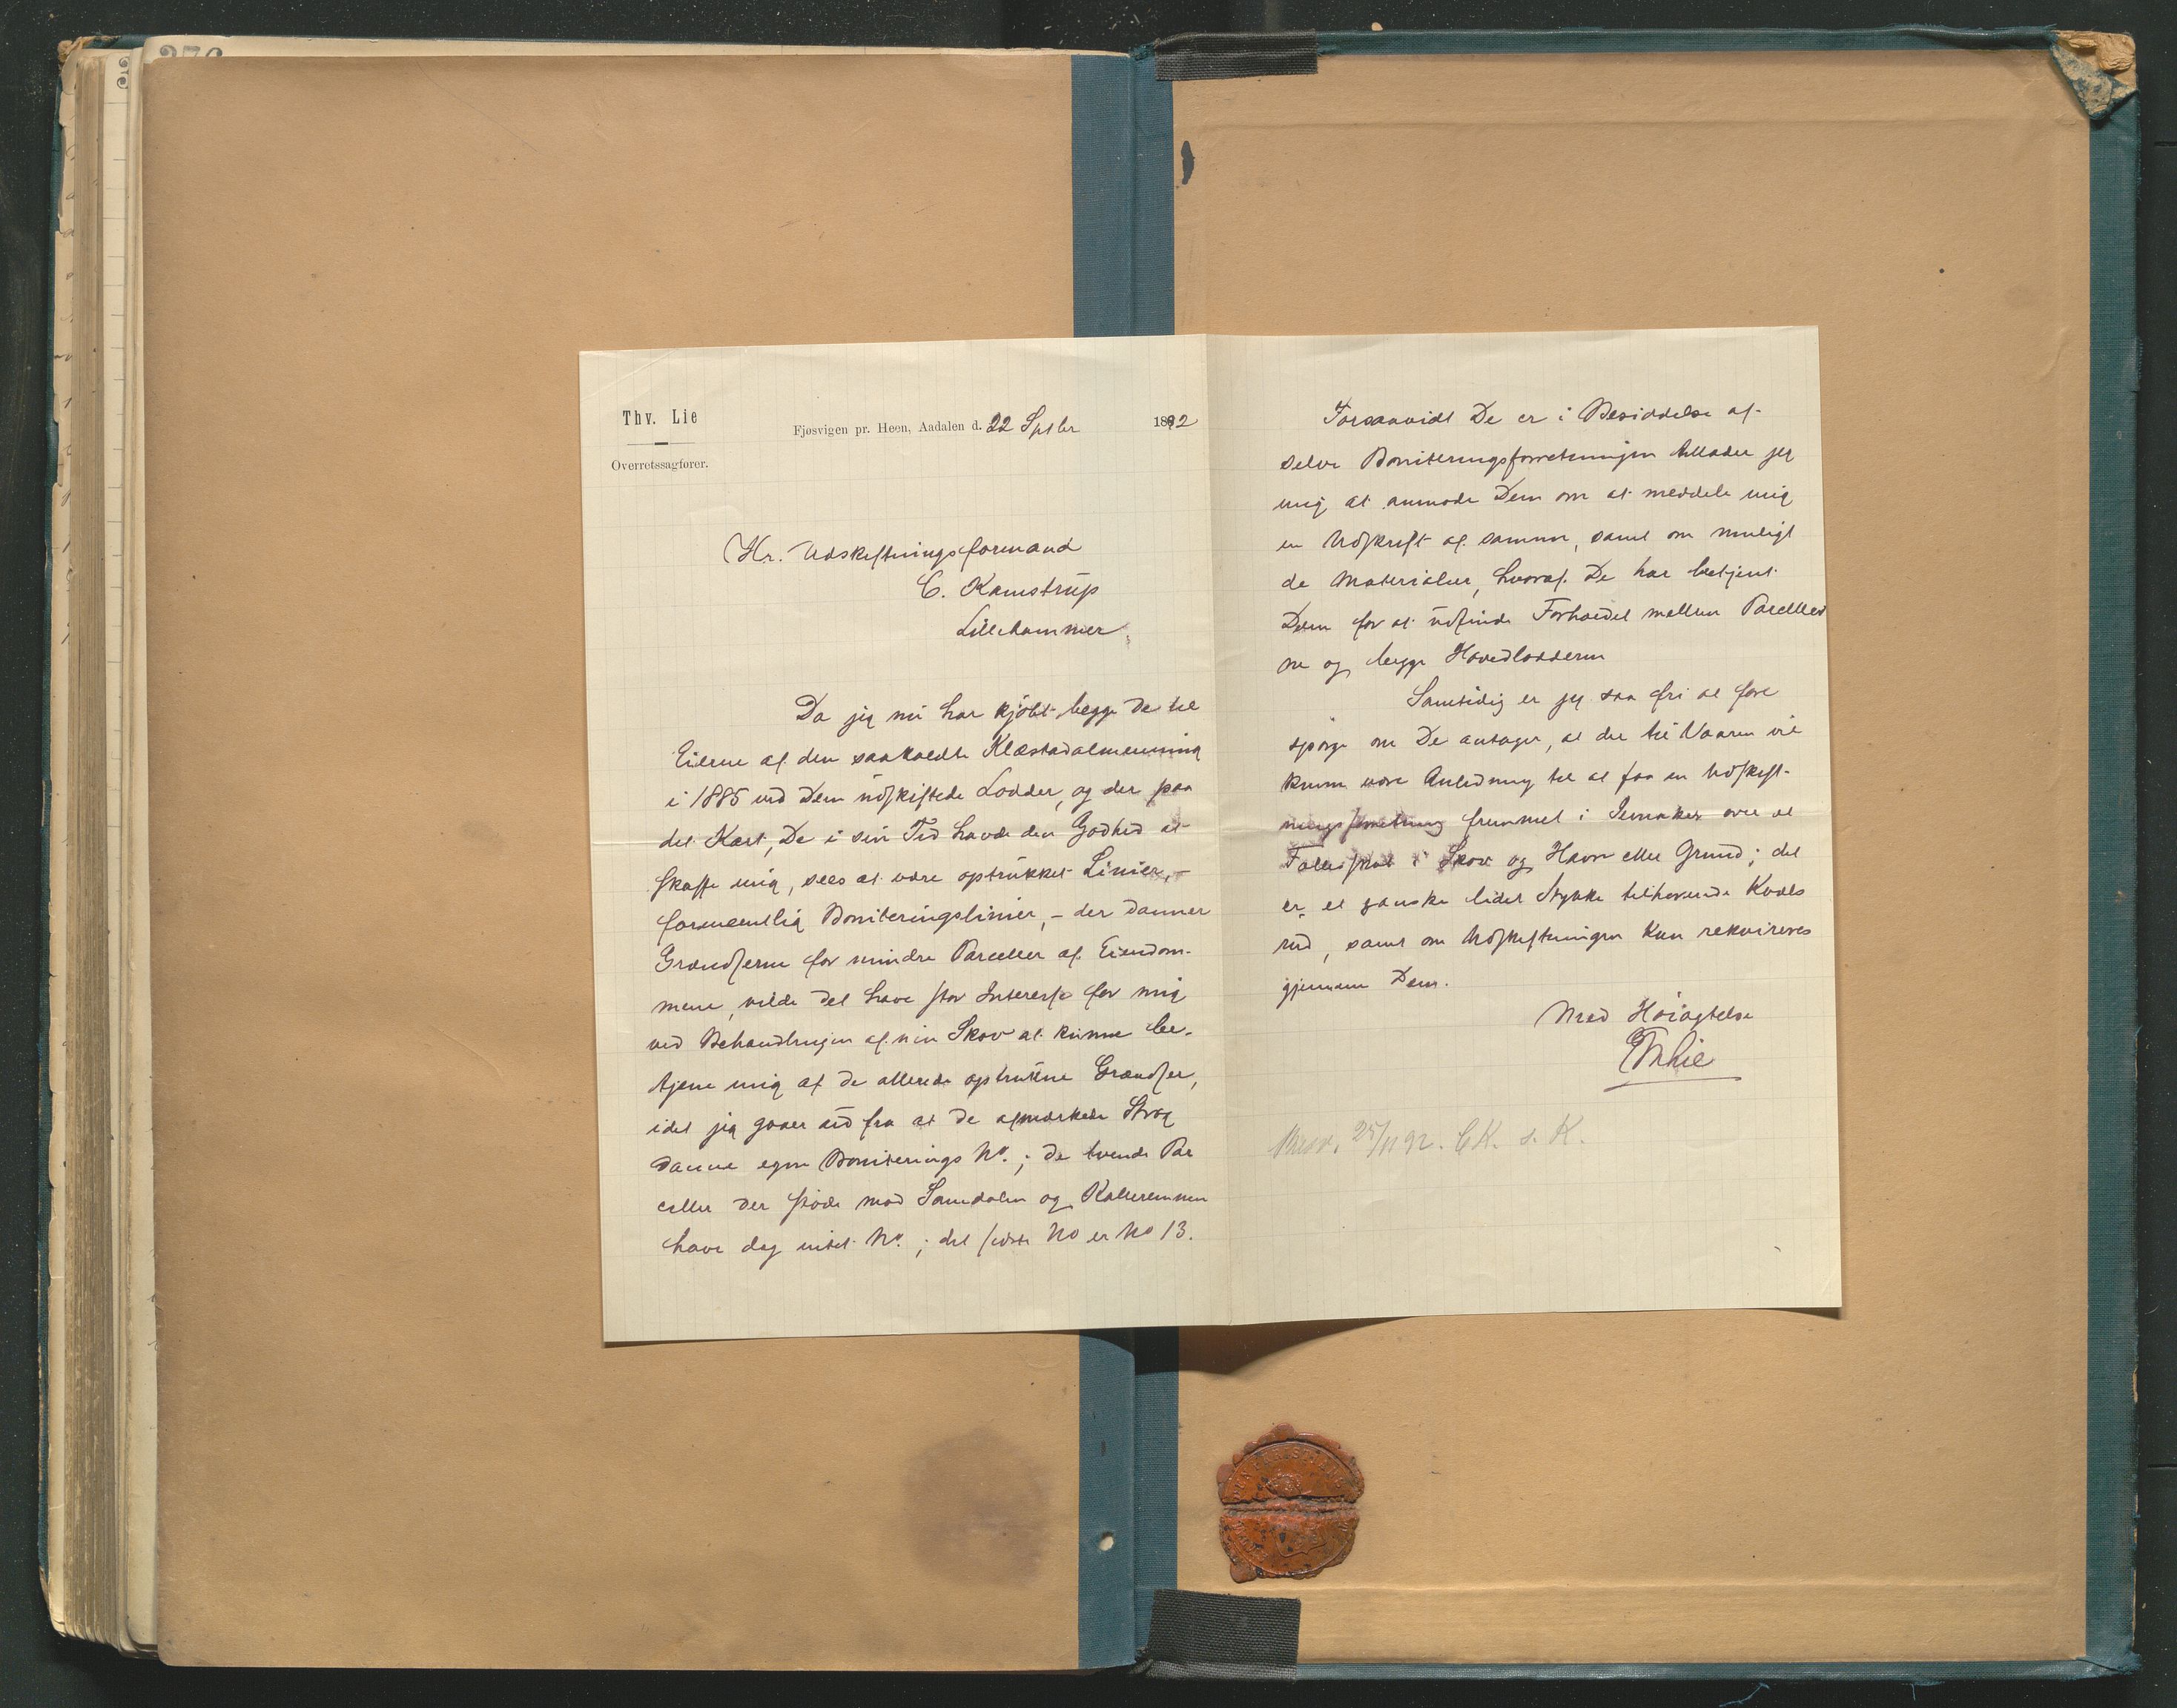 276
Thv. Lie
Overretssagfører.
Fjøsvigen pr. Heen, Aadalen d. 22 Sptbr 1892
Hr. Udskiftningsformand
C. Kamstrup
Lillehammer.
Da jeg nu har kjøbt begge de til
Eierne af den saakaldte Klæstadalmenning
i 1885 ved Dem udskiftede Lodder, og der paa
det Kart, De i sin Tid havde den Godhed at
skaffe mig, sees at være optrukket Linier, –
formentlig Boniteringslinier, – der danner
Grændserne for mindre Parceller af Eiendom-
mene, vilde det have stor Interesse for mig
ved Behandlingen af min Skov at kunne be-
tjene mig af de allerede optrukne Grændser,
idet jeg gaaer ud fra at de afmærkede Strøg
danne egne Boniterings No.; de tvende Par
celler der støde mod Samdalen og
have dog intet No.; det sidste No er No 13.
Forsaavidt De er i Besiddelse af
selve Boniteringsforretningen tillader jeg
mig at anmode Dem om at meddele mig
en Udskrift af samme, samt om muligt
de Materialier, hvoraf De har betjent
Dem for at udfinde Forholdet mellem Parceller
ne og begge Hovedlodderne
Samtidig er jeg saa fri at fore
spørge om De antager, at der til Vaaren vil
kunne være Anledning til at faa en Udskift-
ningsforretning fremmet i Jevnaker over et
Fællesskab i Skov og Havn eller Grund; det
er et ganske lidet Stykke tilhørende
rud, samt om Udskiftningen kan rekvireres
gjennem Dem.
Med Høiagtelse
ThLie
Besv. 25/11 92. CK. s. K.